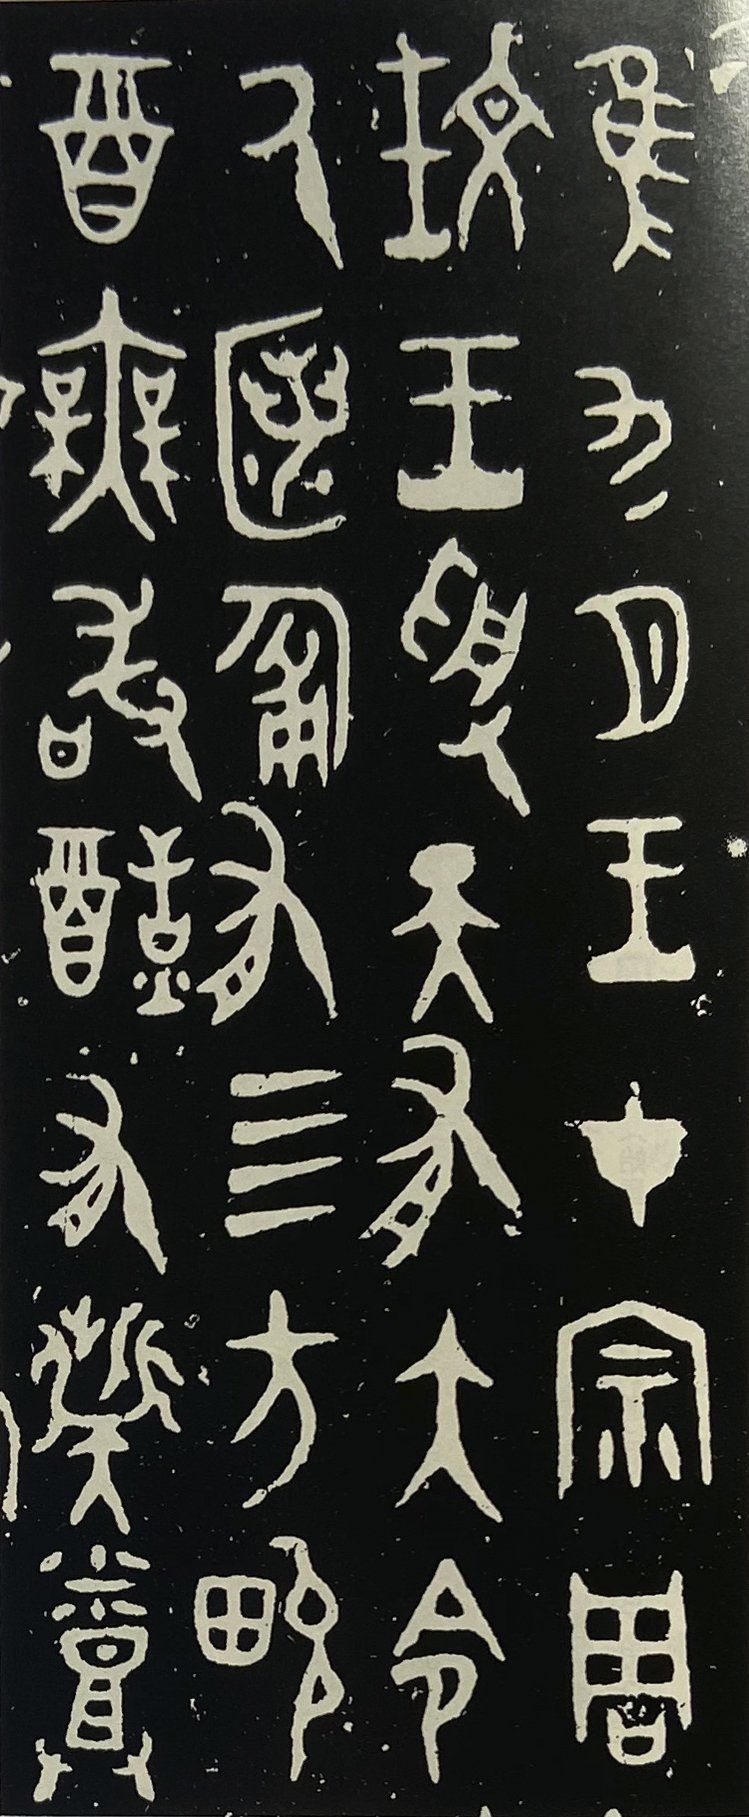 隹九月王才宗周
玟王受天有大令
厥匿匍有四方畯
酉無敢酖有髭烝